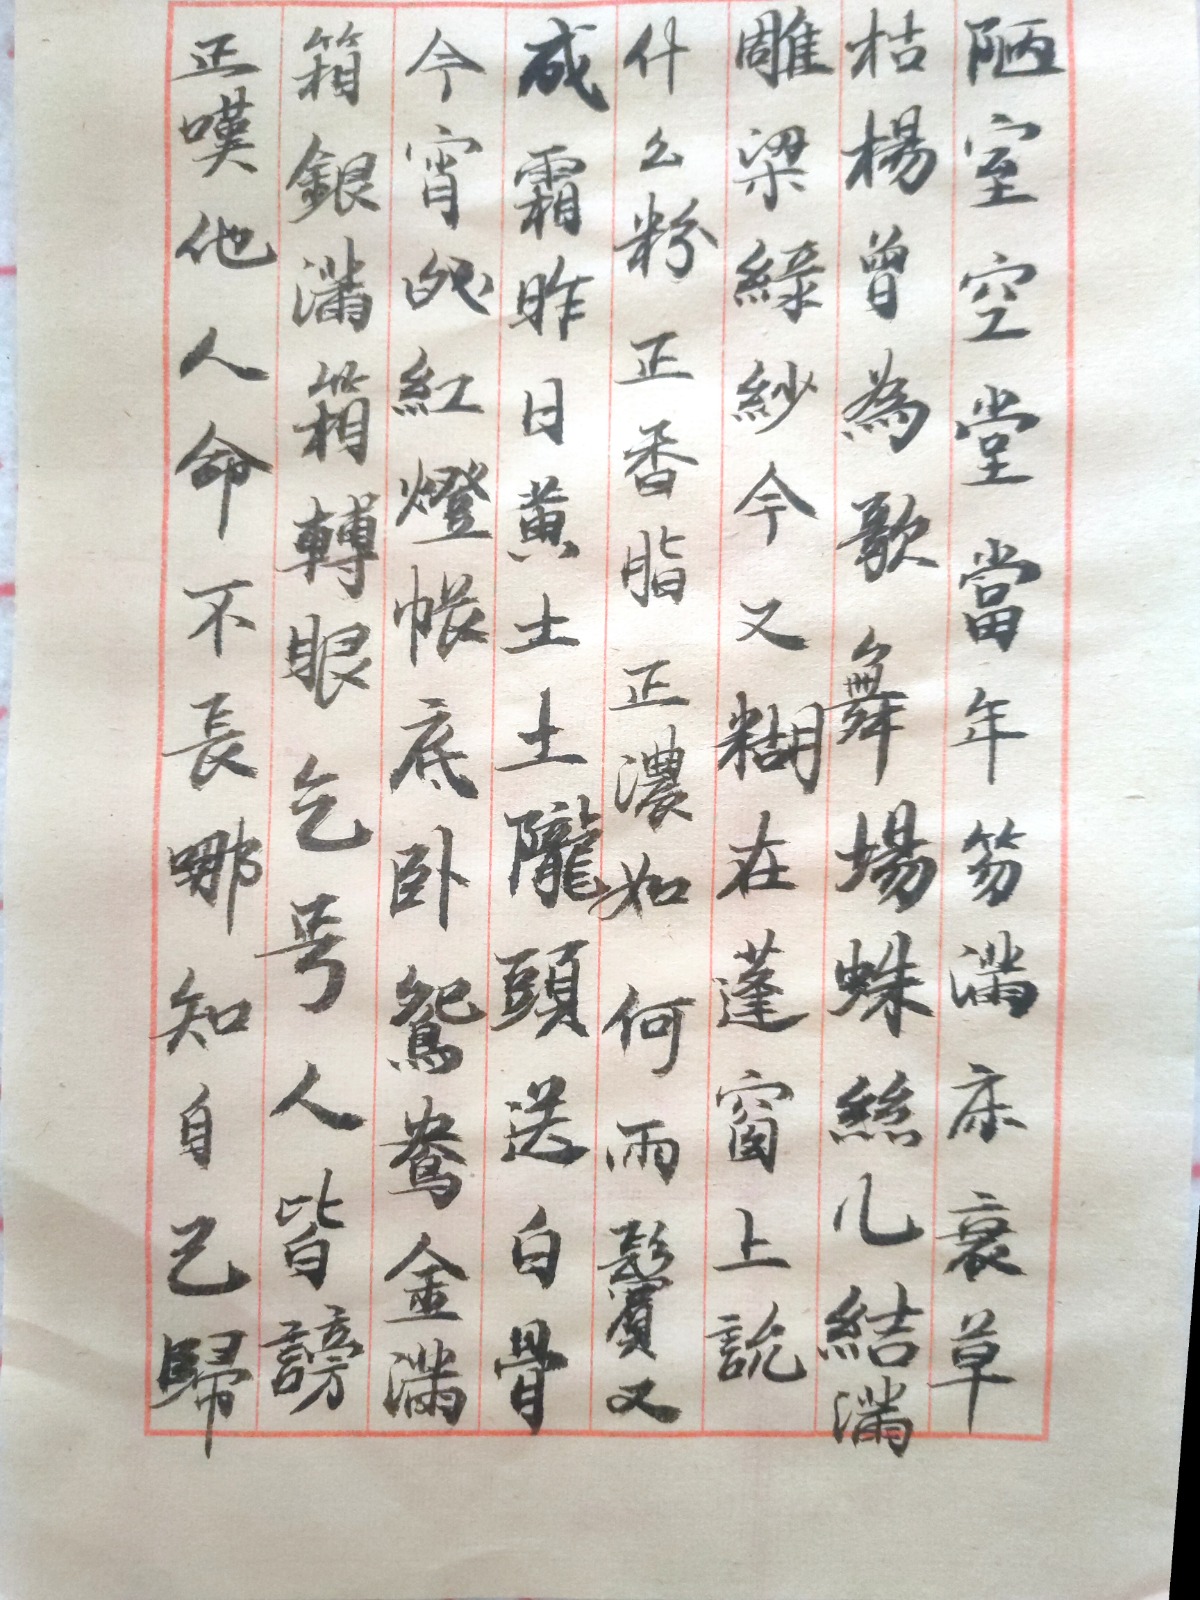 陋室空堂當年笏滿床衰草
枯楊曾為歌舞場蛛絲儿結滿
雕梁綠紗今又糊在蓬窗上說
什么粉正香脂正濃如何兩鬢又
成霜昨日黃土土隴頭送白骨
今宵紅燈帳底卧鴛鴦金滿
箱銀滿箱轉眼乞号人皆謗
正嘆他人命不長哪知自己歸